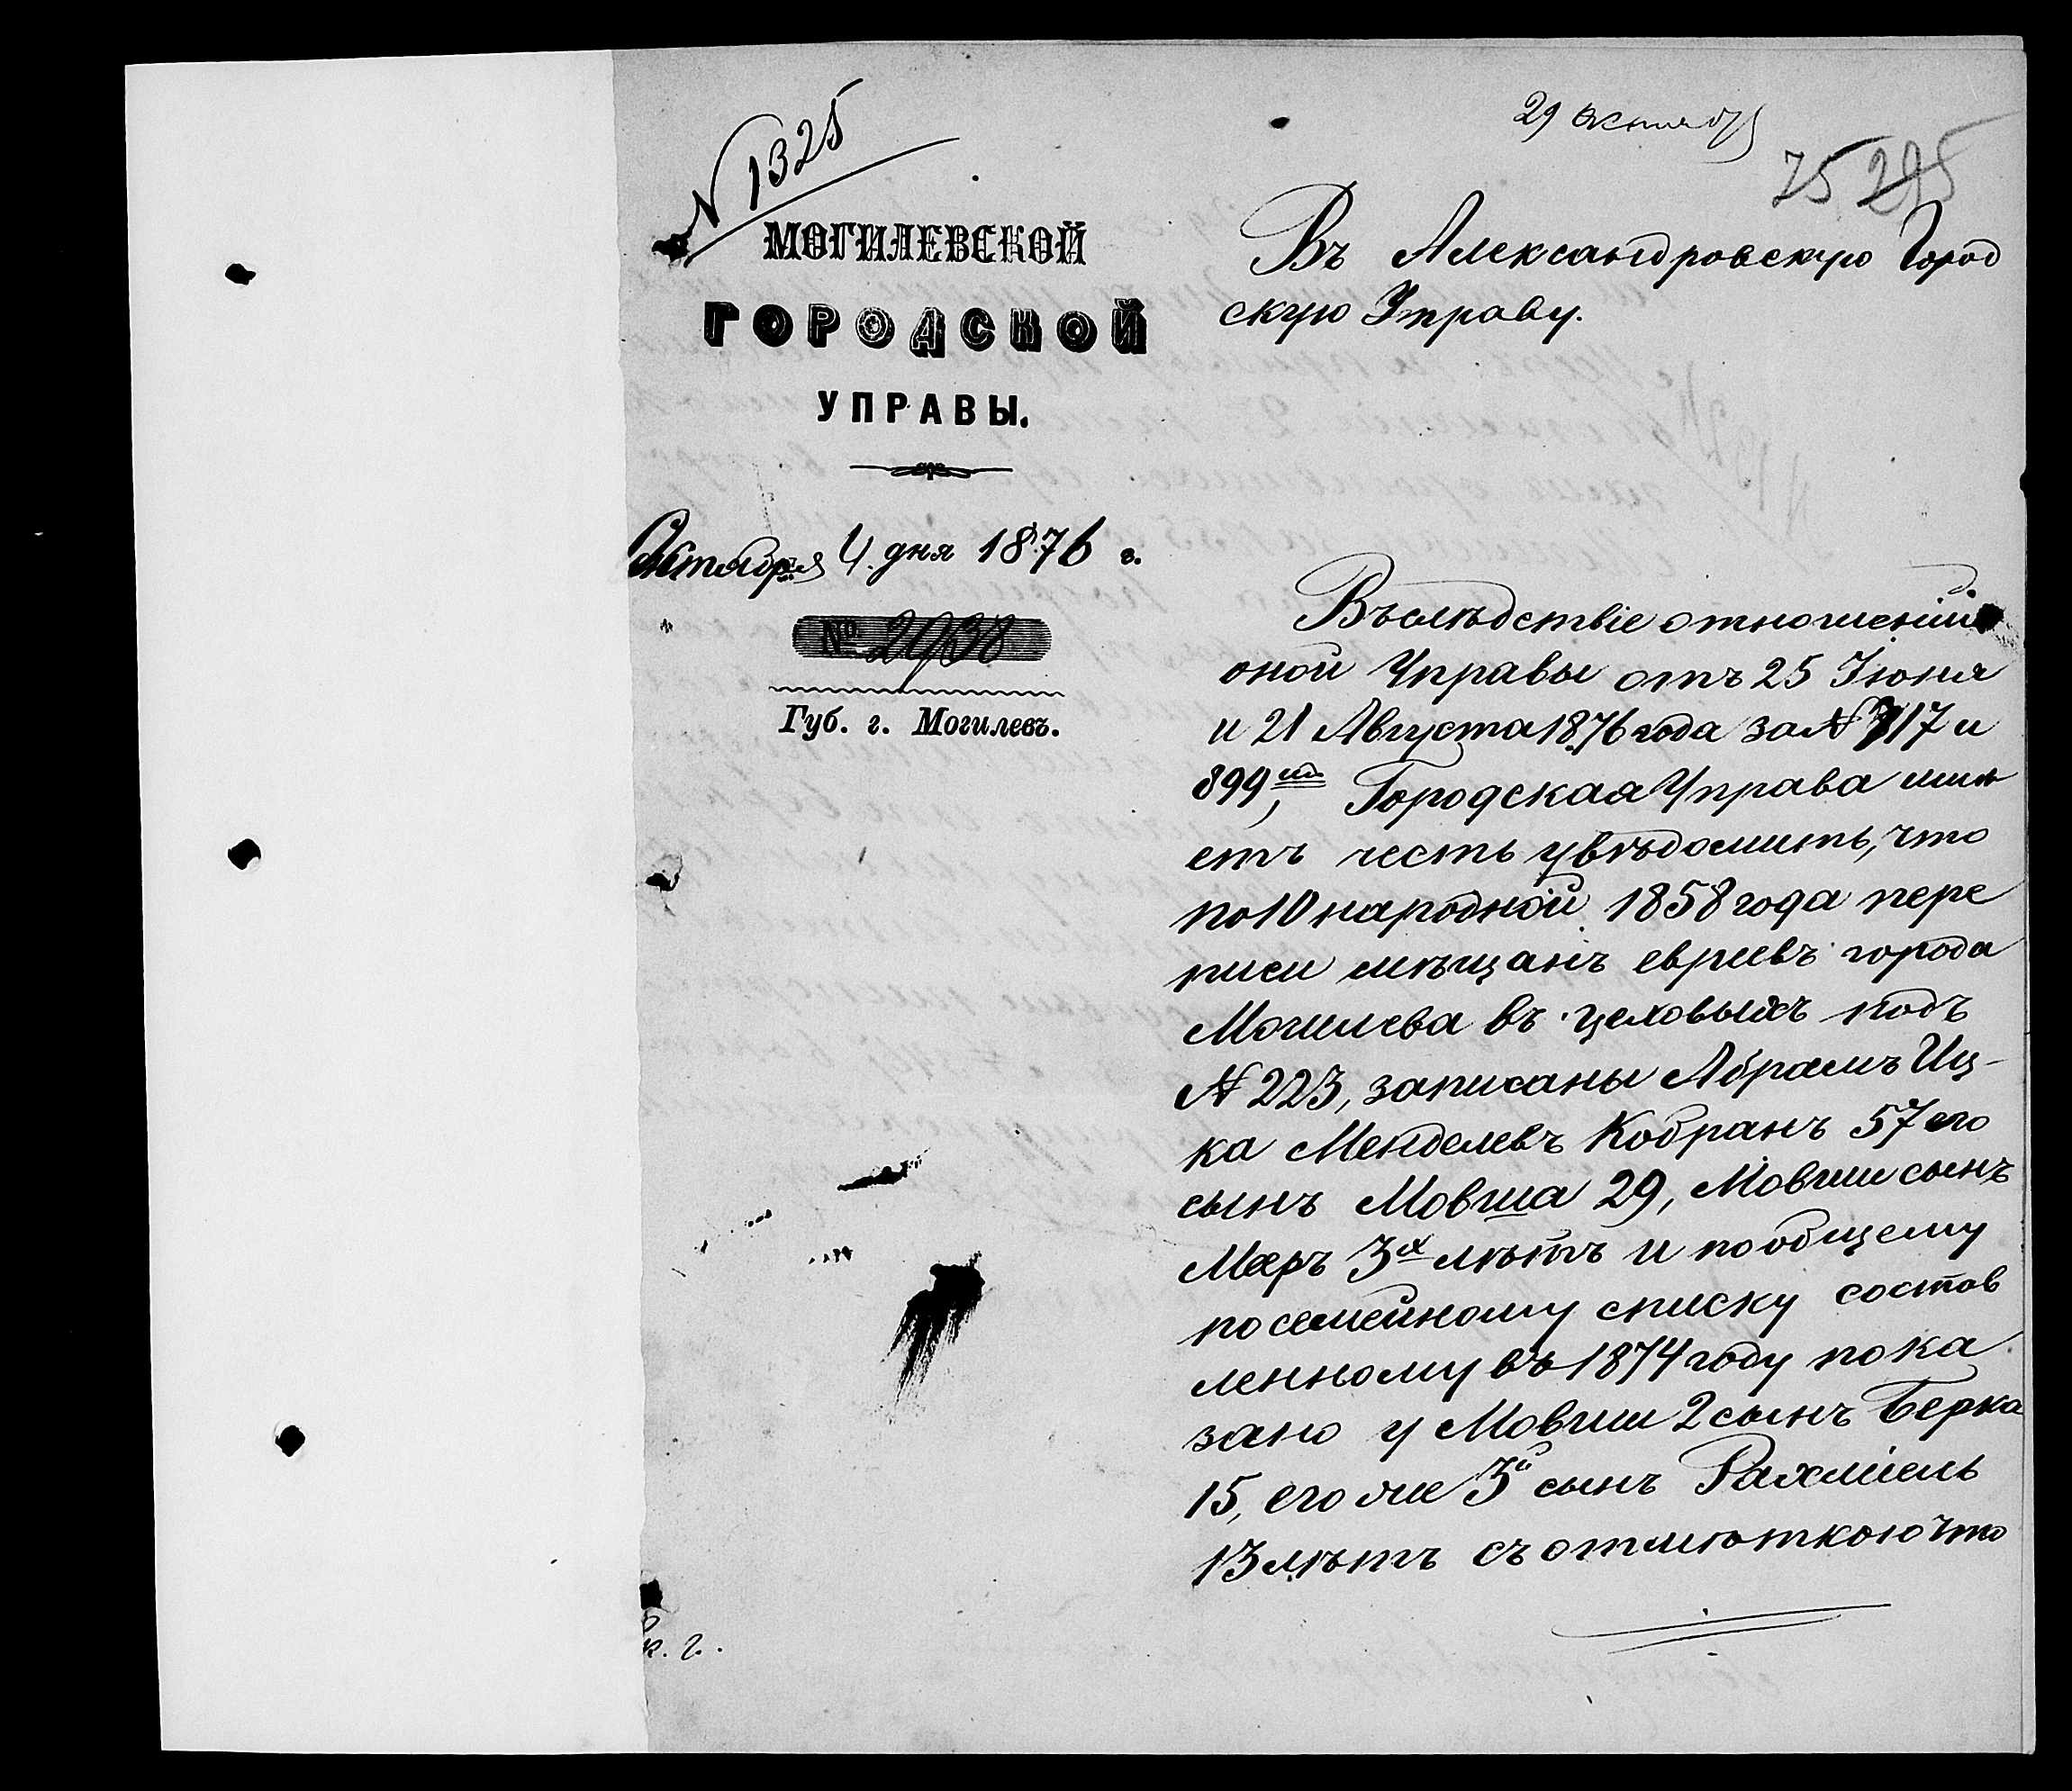 N 1325
МОГИЛЕВСКОЙ
ГОРОДСКОЙ
УПРАВЫ.
Октября 4. дня 1876 г.
№ 2938
Губ. г. Могилевъ.
29 октября
75 295
Въ Александровскую Город
скую Управу.
Въслѣдствіе отношеній
оной Управы отъ 25 Іюня
и 21 Августа 1876 года за N 717 и
899, Городская Управа имѣ
етъ честь увѣдомить, что
по 10 народной 1858 года пере
писи мѣщанъ евреевъ города
Могилева въ цеховыхъ подъ
N 223, записаны Абрамъ Иц-
ка Менделевъ Кобранъ 57 его
сынъ Мовша 29, Мовши сынъ
Меръ 3х лѣтъ и по общему
посемейному списку состав
ленному въ 1874 году пока
зано у Мовши 2 сынъ Берка
15, его же 3й сынъ Рахміель
13 лѣтъ съ отмѣткою что
к. г.